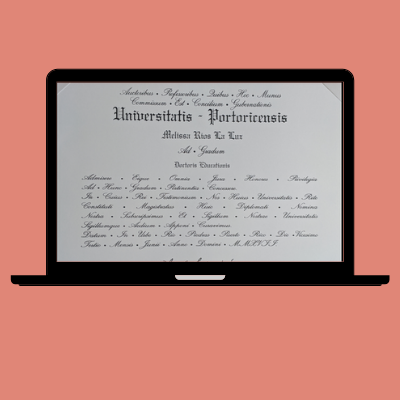 Auctoribus • Professoribus • Quibus • Hoc • Munus
Commissum • Ed • Concilium • Gubernationis
Universitatis - Portoricensis
Melissa Rios La Luz
Ad • Gradum
Doctoris Educationis
Admisimus • Eique • Omnia • Jura • Honores • Privilegia
Ad • Hunc • Gradum • Pertinentia • Concessim
In • Cuius • Rei • Testimonium • Nos • Huius • Universitatis • Rite
Constituti • Magistratus • Huic • Diplomati • Nomina
Nostra • Subscripsimus • Et • Sigillum • Nostrae • Universitatis
Sigillumque • • Apponi • Curavimus
Datum • In • Urbe • Rio • Piedras • Puerto • Rico • Die •
Mensis • Junii • Anno • Domini •